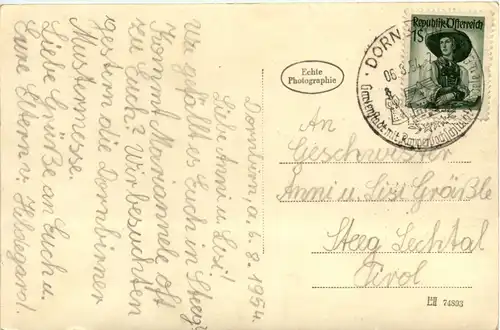 Dornbirn, a, 6. 8. 1954.
Liebe Anni u. Lisi!
Wie gefällt es Euch in Steeg?
Kommt Mariannele oft
zu Euch? Wir besuchten
gestern die Dornbirner
Mustermesse.
Liebe Grüße an Euch u.
Eure Eltern v. Hildegard!
Echte
Photographie
Republik Österreich
1S
DORN
06.8.54
Gartenstadt mit
An
Geschwister
Anni u. Lisi Gräßle
Steeg Lechtal
Tirol
74893